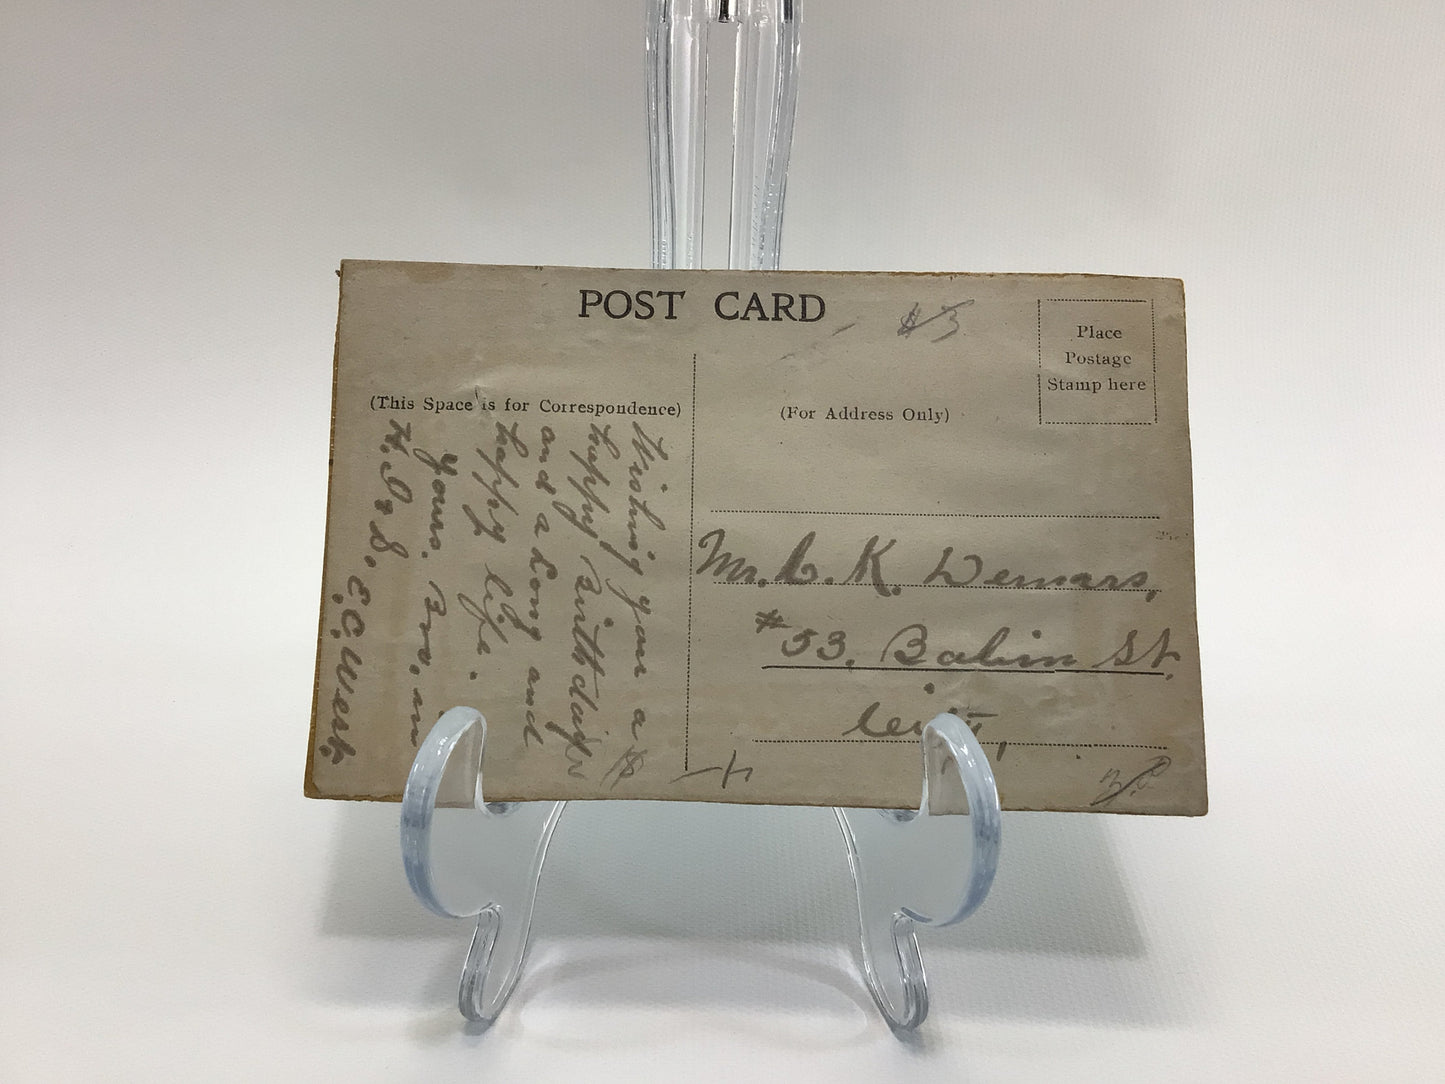 POST CARD
#3
Place
Postage
Stamp here
(This Space is for Correspondence)
(For Address Only)
Wishing you a
happy Birthday
and a long and
happy life.
Yours. Bro, in
H. D & S.
E. C. West.
Mr. C. K. Demars,
#53. Balim St.
City,